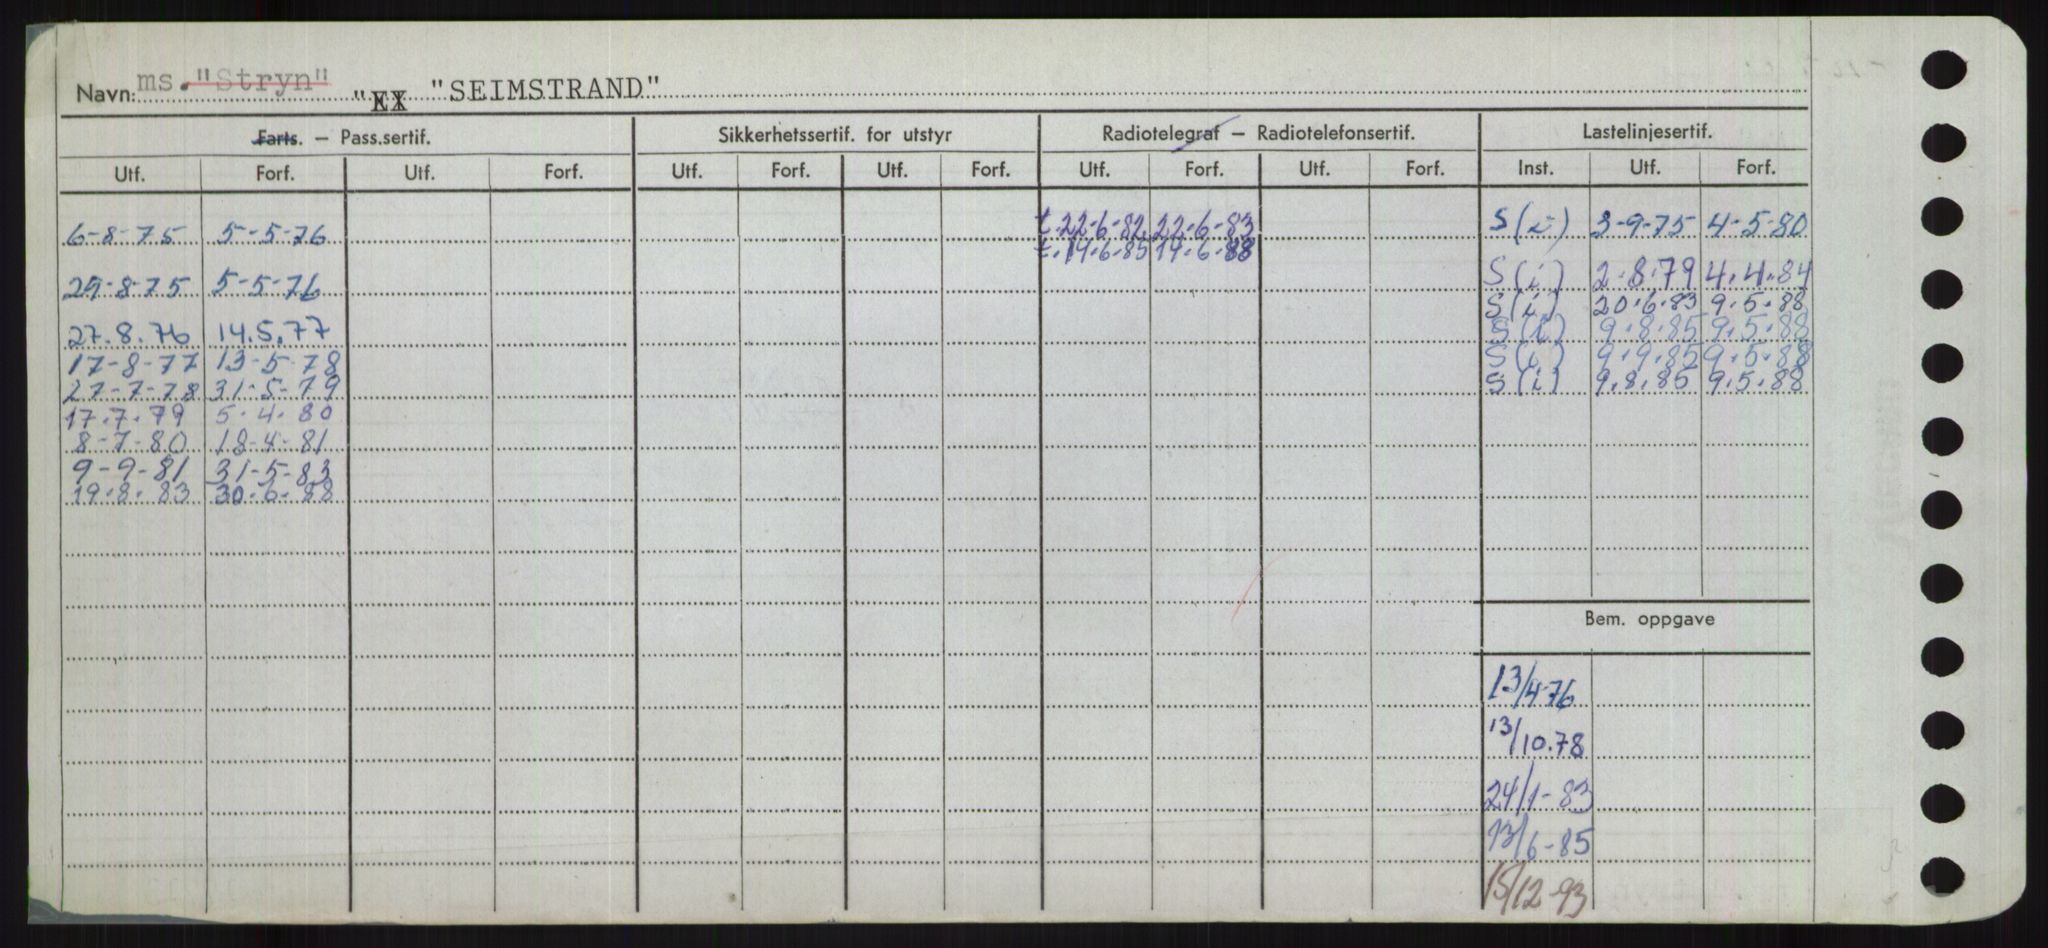 Navn: ms. "Stryn" "EX "SEIMSTRAND"
Farts. — Pass.sertif. Sikkerhetssertif. for utstyr Radiotelegraf — Radiotelefonsertif. Lastelinjesertif.
Utf. Forf. Utf. Forf. Utf. Forf. Utf. Forf. Utf. Forf. Utf. Forf. Inst. Utf. Forf.
6-8-75 5-5-76 t.22-6-82 22-6-83 S(i) 3-9-75 4-5-80
t.14.6.85 14.6.88
29-8-75 5-5-76 S(i) 2.8.79 4.4.84
S(i) 20.6.83 9.5.88
27.8.76 14.5.77 S(i) 9.8.85 9.5.88
17-8-77 13-5-78 S(i) 9.9.85 9.5.88
27-7-78 31-5-79 S(i) 9.8.85 9.5.88
17.7.79 5.4.80
8-7-80 18-4-81
9-9-81 31-5-83
19.8.83 30.6.88
Bem. oppgave
13/4-76
13/10.78
24/1-83
13/6-85
15/12-93